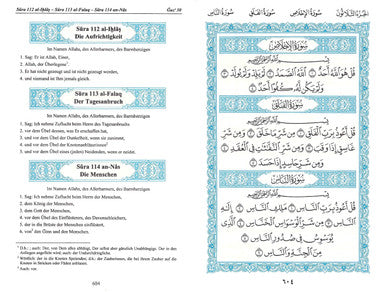 Sūra 112 al-Iḫlāṣ – Sūra 113 al-Falaq – Sūra 114 an-Nās
Ǧuzʾ 30
Sūra 112 al-Iḫlāṣ
Die Aufrichtigkeit
Im Namen Allahs, des Allerbarmers, des Barmherzigen
1. Sag: Er ist Allah, Einer,
2. Allah, der Überlegene¹.
3. Er hat nicht gezeugt und ist nicht gezeugt worden,
4. und niemand ist ihm jemals gleich.
Sūra 113 al-Falaq
Der Tagesanbruch
Im Namen Allahs, des Allerbarmers, des Barmherzigen
1. Sag: Ich nehme Zuflucht beim Herrn des Tagesanbruchs
2. vor dem Übel dessen, was Er erschaffen hat,
3. und vor dem Übel der Dunkelheit, wenn sie zunimmt,
4. und vor dem Übel der Knotenanbläserinnen²
5. und vor dem Übel eines (jeden) Neidenden, wenn er neidet.
Sūra 114 an-Nās
Die Menschen
Im Namen Allahs, des Allerbarmers, des Barmherzigen
1. Sag: Ich nehme Zuflucht beim Herrn der Menschen,
2. dem König der Menschen,
3. dem Gott der Menschen,
4. vor dem Übel des Einflüsterers, des Davonschleichers,
5. der in die Brüste der Menschen einflüstert,
6. von³ den Ginn und den Menschen.
604
الجزء الثلاثون
سورة الإخلاص
سورة الفلق
سورة الناس
سُورَةُ الإِخْلَاصِ
بِسْمِ اللَّهِ الرَّحْمَٰنِ الرَّحِيمِ
قُلْ هُوَ اللَّهُ أَحَدٌ ١ اللَّهُ الصَّمَدُ ٢ لَمْ يَلِدْ وَلَمْ يُولَدْ ٣
وَلَمْ يَكُن لَّهُ كُفُوًا أَحَدٌ ٤
سُورَةُ الْفَلَقِ
بِسْمِ اللَّهِ الرَّحْمَٰنِ الرَّحِيمِ
قُلْ أَعُوذُ بِرَبِّ الْفَلَقِ ١ مِن شَرِّ مَا خَلَقَ ٢ وَمِن شَرِّ
غَاسِقٍ إِذَا وَقَبَ ٣ وَمِن شَرِّ النَّفَّاثَاتِ فِي الْعُقَدِ ٤
وَمِن شَرِّ حَاسِدٍ إِذَا حَسَدَ ٥
سُورَةُ النَّاسِ
بِسْمِ اللَّهِ الرَّحْمَٰنِ الرَّحِيمِ
قُلْ أَعُوذُ بِرَبِّ النَّاسِ ١ مَلِكِ النَّاسِ ٢ إِلَٰهِ
النَّاسِ ٣ مِن شَرِّ الْوَسْوَاسِ الْخَنَّاسِ ٤ الَّذِي
يُوَسْوِسُ فِي صُدُورِ النَّاسِ ٥
مِنَ الْجِنَّةِ وَالنَّاسِ ٦
٦٠٤